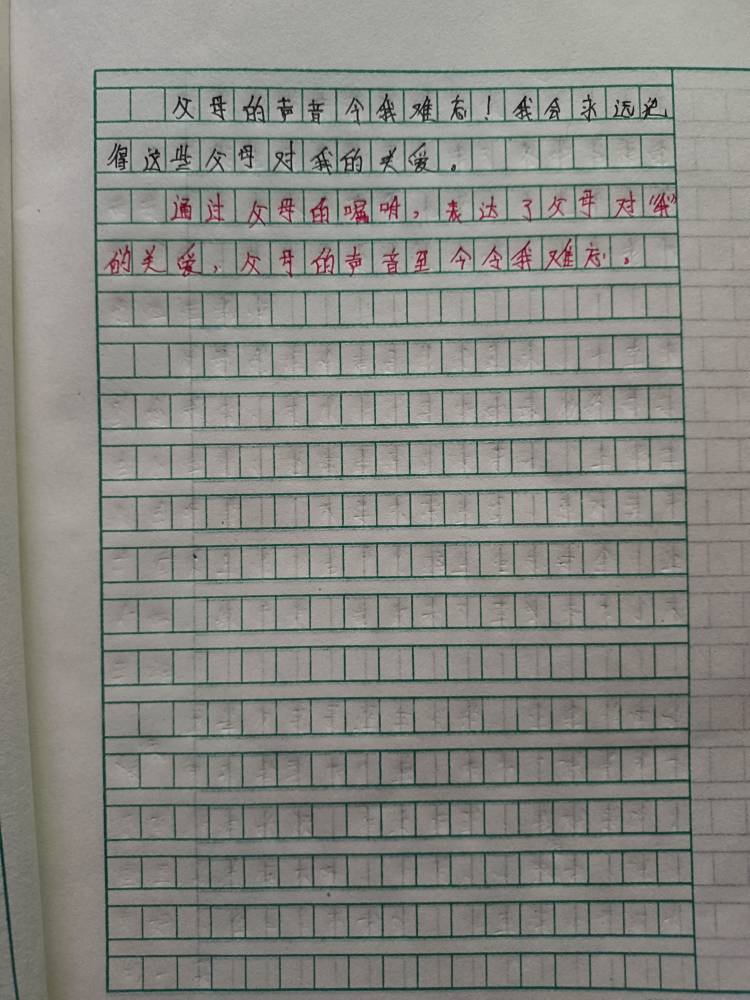 父母的声音令我难忘！我会永远记
得这些父母对我的关爱。
通过父母的嘱咐，表达了父母对“我”
的关爱，父母的声音至今令我难忘。